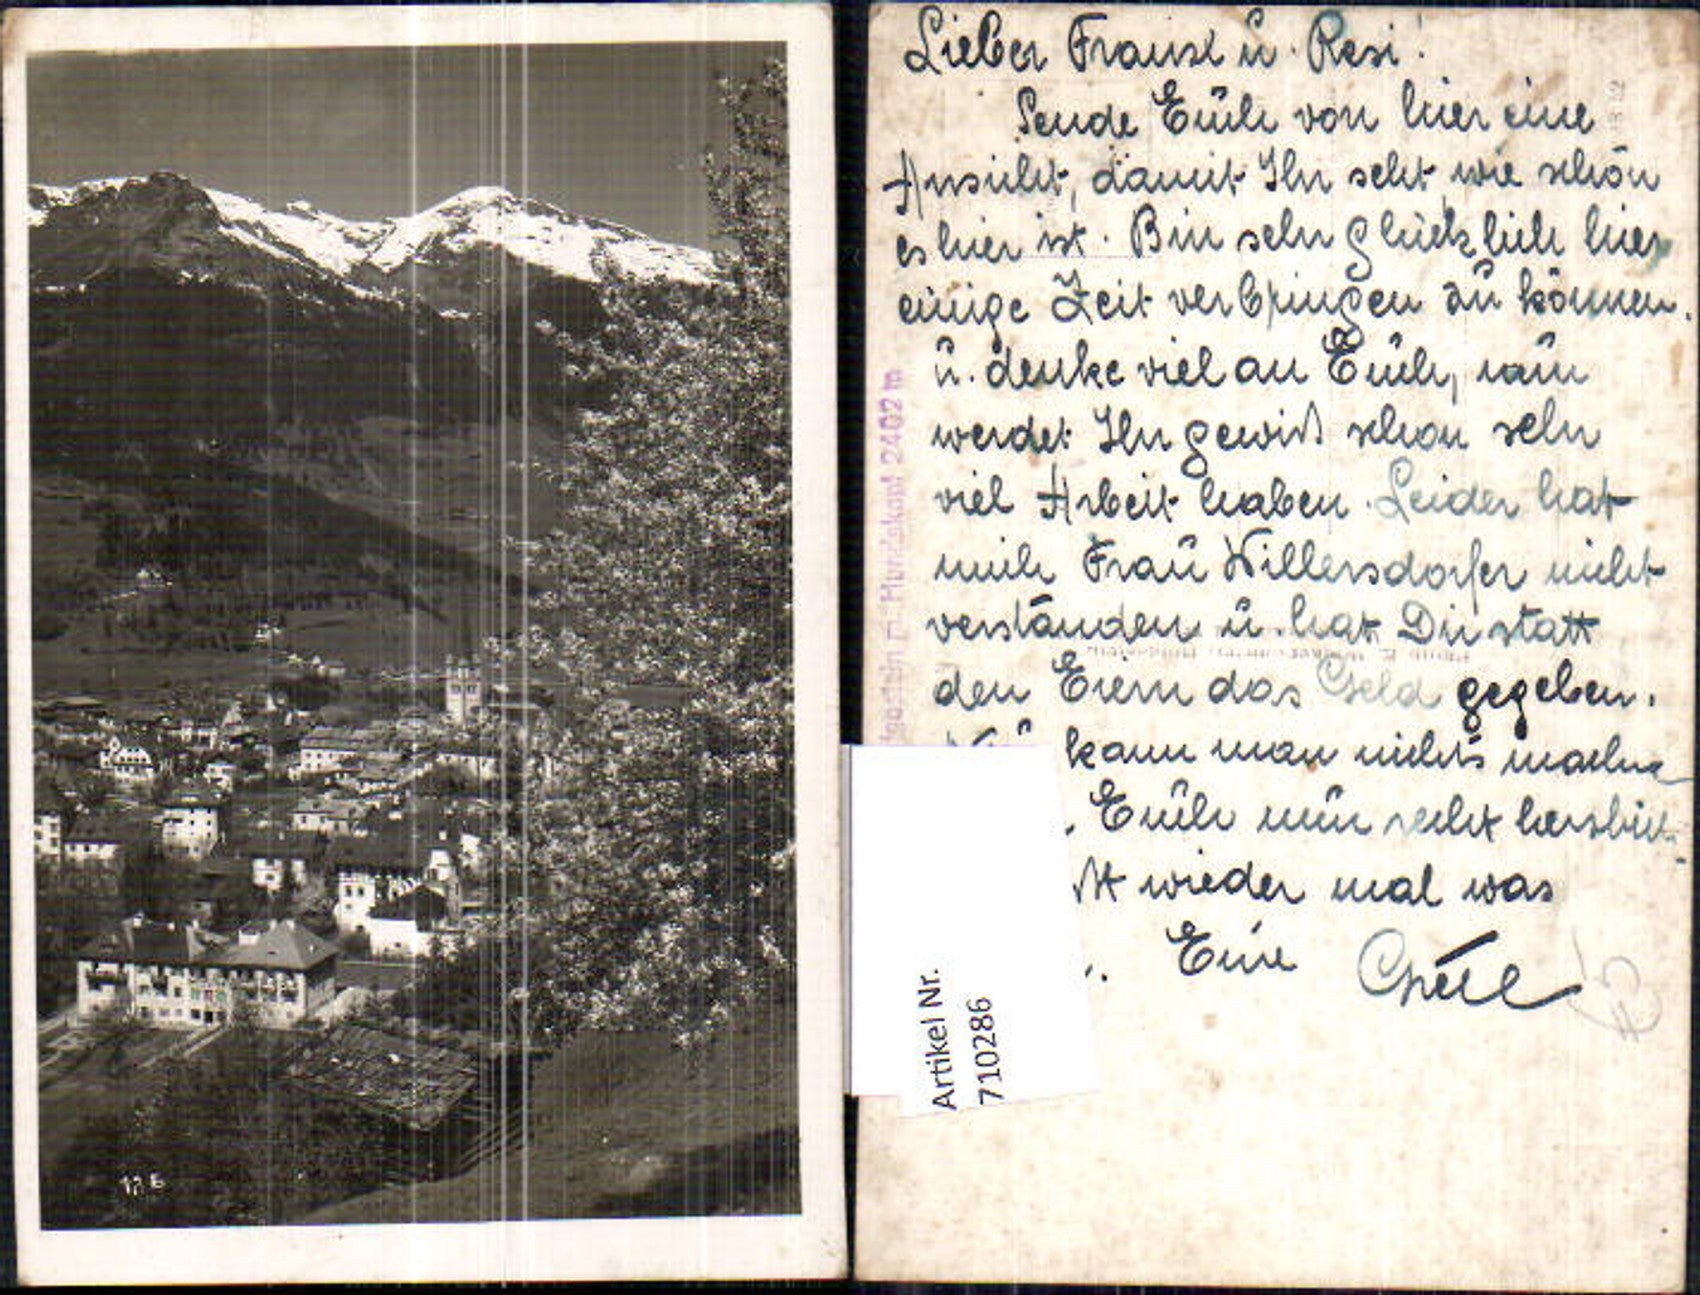 Lieber Franzl u. Resi!
Sende Euch von hier eine
Ansicht, damit Ihr seht wie schön
es hier ist. Bin sehr glücklich hier
einige Zeit verbringen zu können.
u. denke viel an Euch, nun
werdet Ihr gewiß schon sehr
viel Arbeit haben. Leider hat
mich Frau Willersdorfer nicht
verstanden u. hat Dir statt
den Eiern das Geld gegeben.
kann man nichts machen
Euch nun recht herzlich
wieder mal was
Eure
Hundskopf 2402 m
Artikel Nr.
7102​86